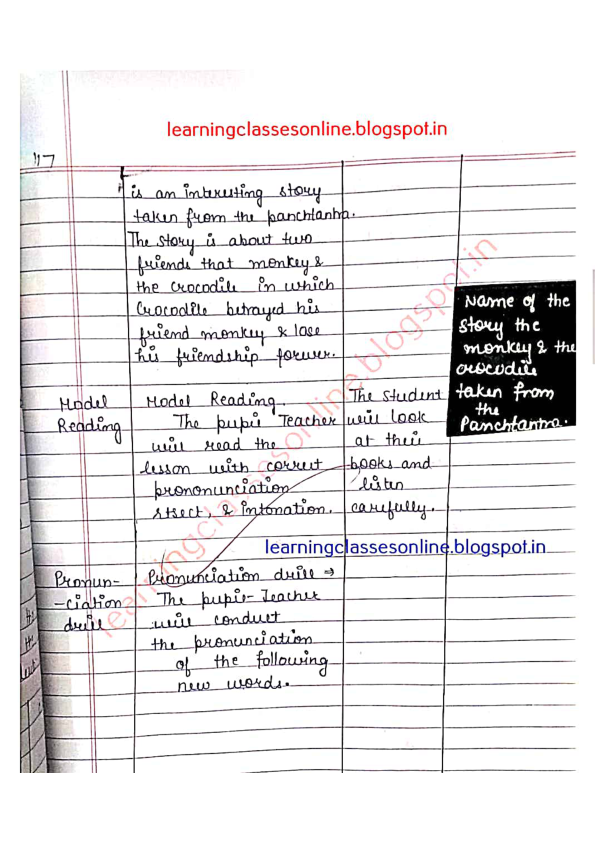 learningclassesonline.blogspot.in
117
is an interesting story
taken from the panchtantra.
The story is about two
friends that monkey &
the crocodile in which
Crocodile betrayed his
friend monkey & lose
his friendship forever.
Name of the
story the
monkey & the
crocodile
taken from
the
Panchtantra.
Model
Reading
Model Reading.
The pupil Teacher
will read the
lesson with correct
prononunciation
stsect, & intonation.
The student
will look
at their
books and
listen
carefully.
learningclassesonline.blogspot.in
Pronun-
-ciation
drill
Pronunciation drill ⇒
The pupil-Teacher
will conduct
the pronunciation
of the following
new words.
learningclassesonline.blogspot.in